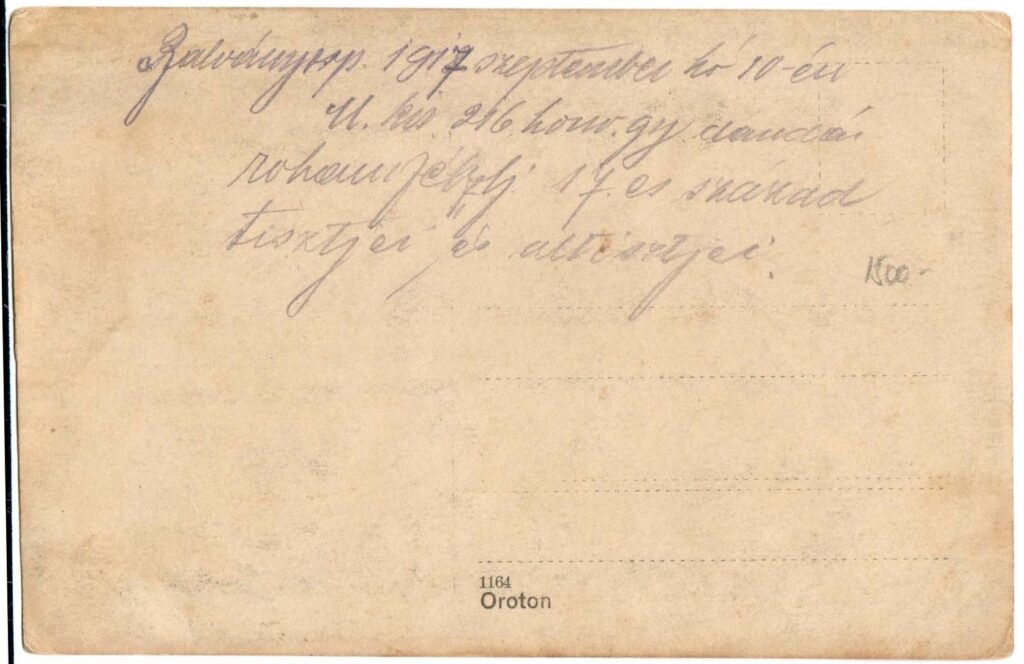 Bálványosp. 1917 szeptember hó 10-én
M. kir. 216 honv. gy. dandár
roham félzlj 17. es szakad
tisztjei és altisztjei.
1500-
1164
Oroton